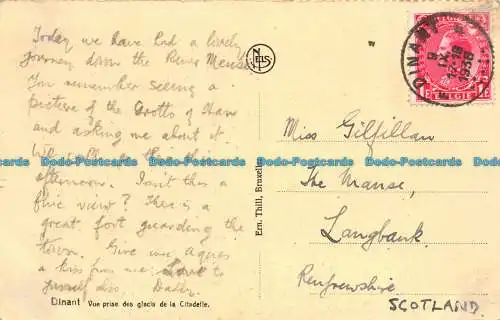 Today we have had a lovely
journey down the River Meuse.
You remember seeing a
picture of the Grotto of Han
and asking me about it.
We this
afternoon. Isn't this a
fine view? There is a
great fort guarding the
town. Give
a kiss from me. Love to
yourself also. Daddy.
Dinant Vue prise des glacis de la Citadelle.
NELS
Ern. Thill, Bruxelles
DINANT
9
IX
17-18
1936
BELGIE
1F
Miss Gilfillan
The Manse,
Langbank.
Renfrewshire
SCOTLAND.
Dodo-Postcards Dodo-Postcards Dodo-Postcards Dodo-Postcards
Dodo-Postcards Dodo-Postcards Dodo-Postcards Dodo-Postcards